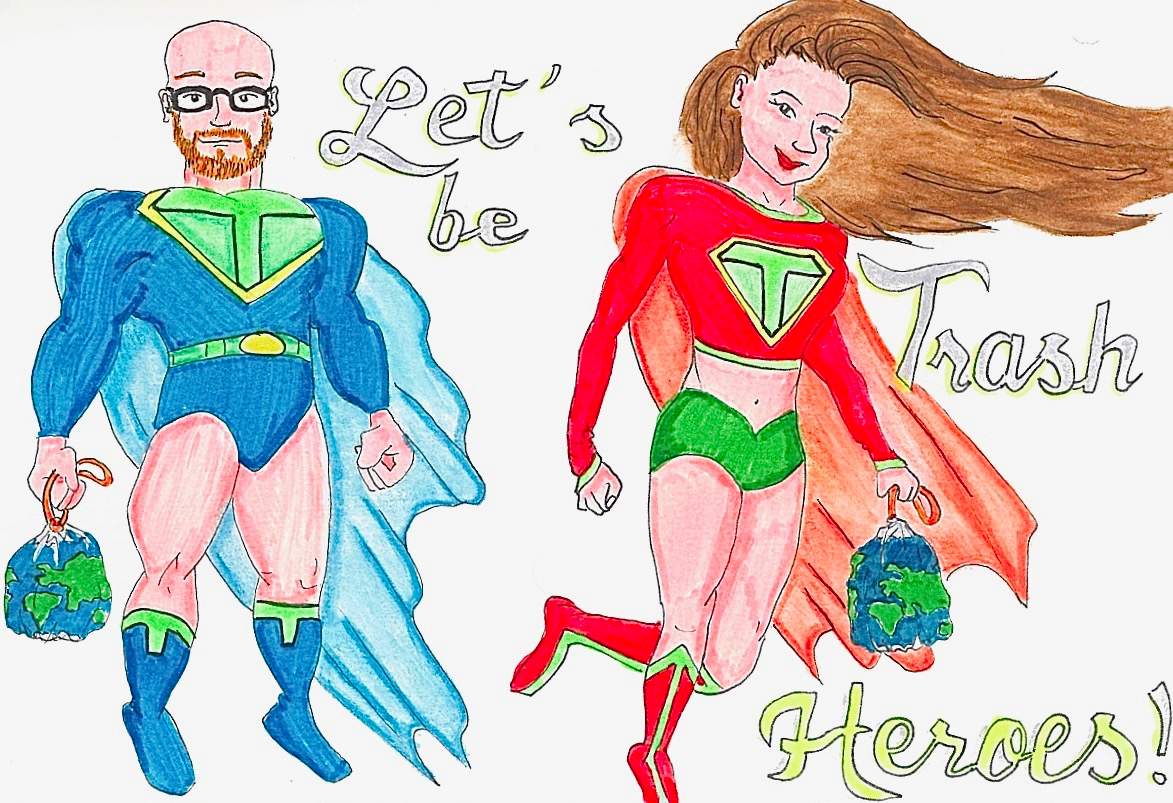 Let's
be
Trash
Heroes!
T
T